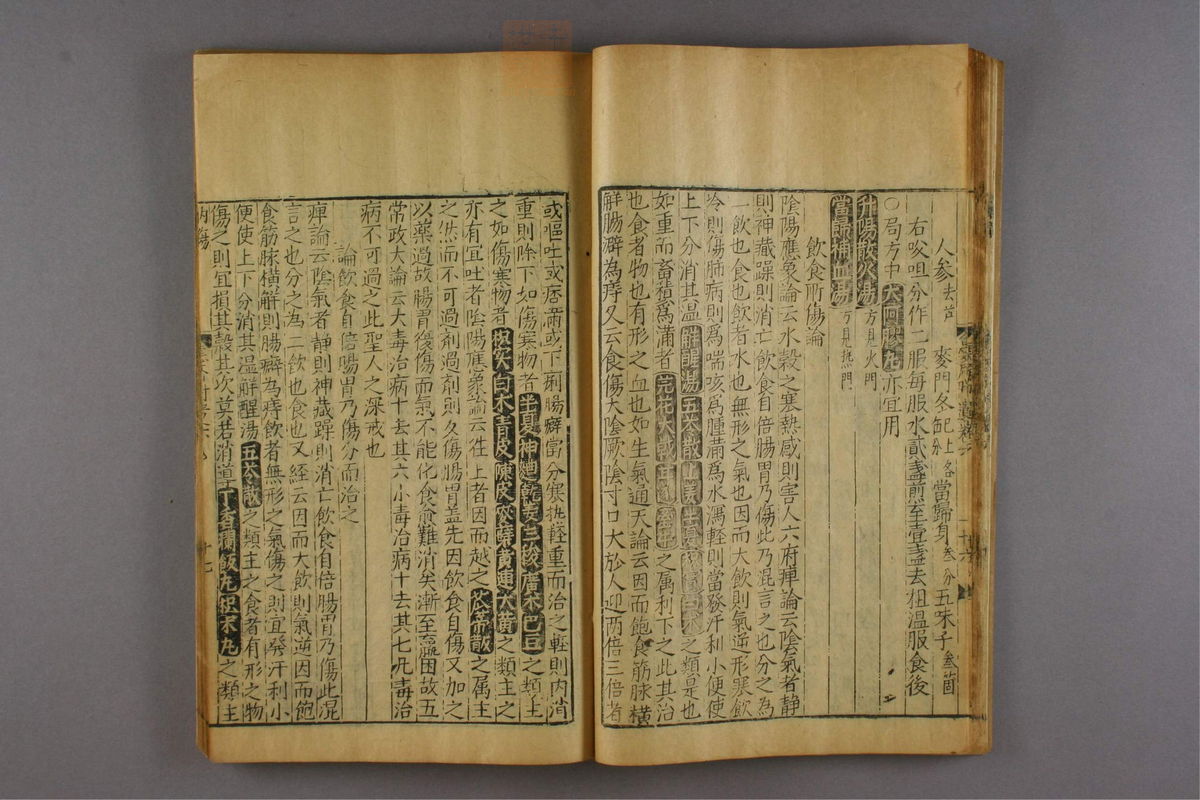 人參去芦 麥門冬 已上各 當歸身叁分 五味子叁箇
右㕮咀分作二服每服水貳盞煎至壹盞去柤溫服食後
○局方中大阿膠丸亦宜用
升陽散火湯方見火門
當歸補血湯方見熱門
飲食所傷論
陰陽應象論云水穀之寒熱感則害人六府痺論云陰氣者靜
則神藏躁則消亡飲食自倍腸胃乃傷此乃混言之也分之為
二飲也食也飲者水也無形之氣也因而大飲則氣逆形寒飲
冷則傷肺病則為喘咳為腫滿為水瀉輕則當發汗利小便使
上下分消其溫解酲湯五苓散半夏枳實白朮之類是也
如重而畜積為滿者芫花大戟甘遂牽牛之属利下之此其治
也食者物也有形之血也如生氣通天論云因而飽食筋脉橫
解腸澼為痔又云食傷太陰厥陰寸口大於人迎两倍三倍者
或嘔吐或痞滿或下痢腸澼當分寒熱輕重而治之輕則內消
重則除下如傷寒物者半夏神麯乾姜三稜廣朮巴豆之類主
之如傷寒物者枳实白朮青皮陳皮麥蘖黃連大黃之類主之
亦有宜吐者陰陽應象論云在上者因而越之瓜蒂散之属主
之然而不可過剤過剤則久傷腸胃盖先因飲食自傷又加之
以藥過故腸胃復傷而氣不能化食愈難消矣漸至羸困故五
常政大論云大毒治病十去其六小毒治病十去其七凡毒治
病不可過之此聖人之深戒也
論飲食自倍腸胃乃傷分而治之
痺論云陰氣者靜則神藏躁則消亡飲食自倍腸胃乃傷此混
言之也分之為二飲也食也又經云因而大飲則氣逆因而飽
食筋脉橫解則腸癖為痔飲者無形之氣傷之則宜發汗利小
便使上下分消其溫解酲湯五苓散之類主之食者有形之物
傷之則宜損其穀其次莫若消導丁香爛飯丸枳朮丸之類主
內傷
十七